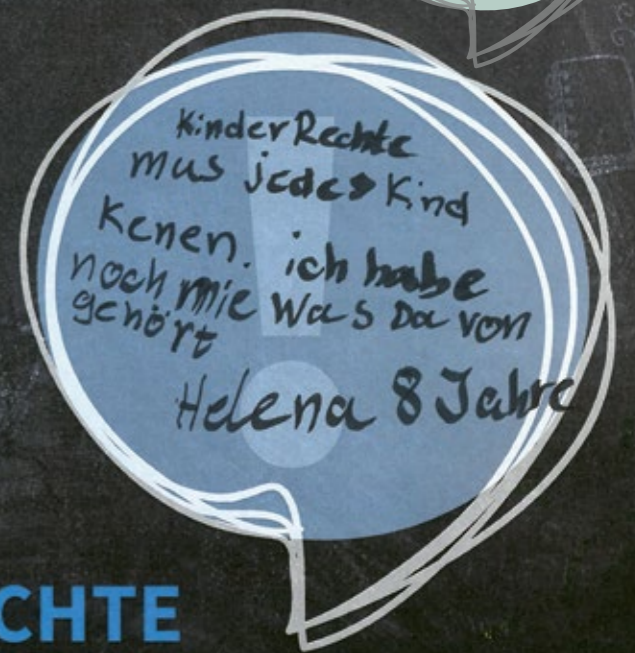 KinderRechte
mus jedes Kind
kenen. ich habe
noch nie was Da von
gehört
Helena 8 Jahre
CHTE